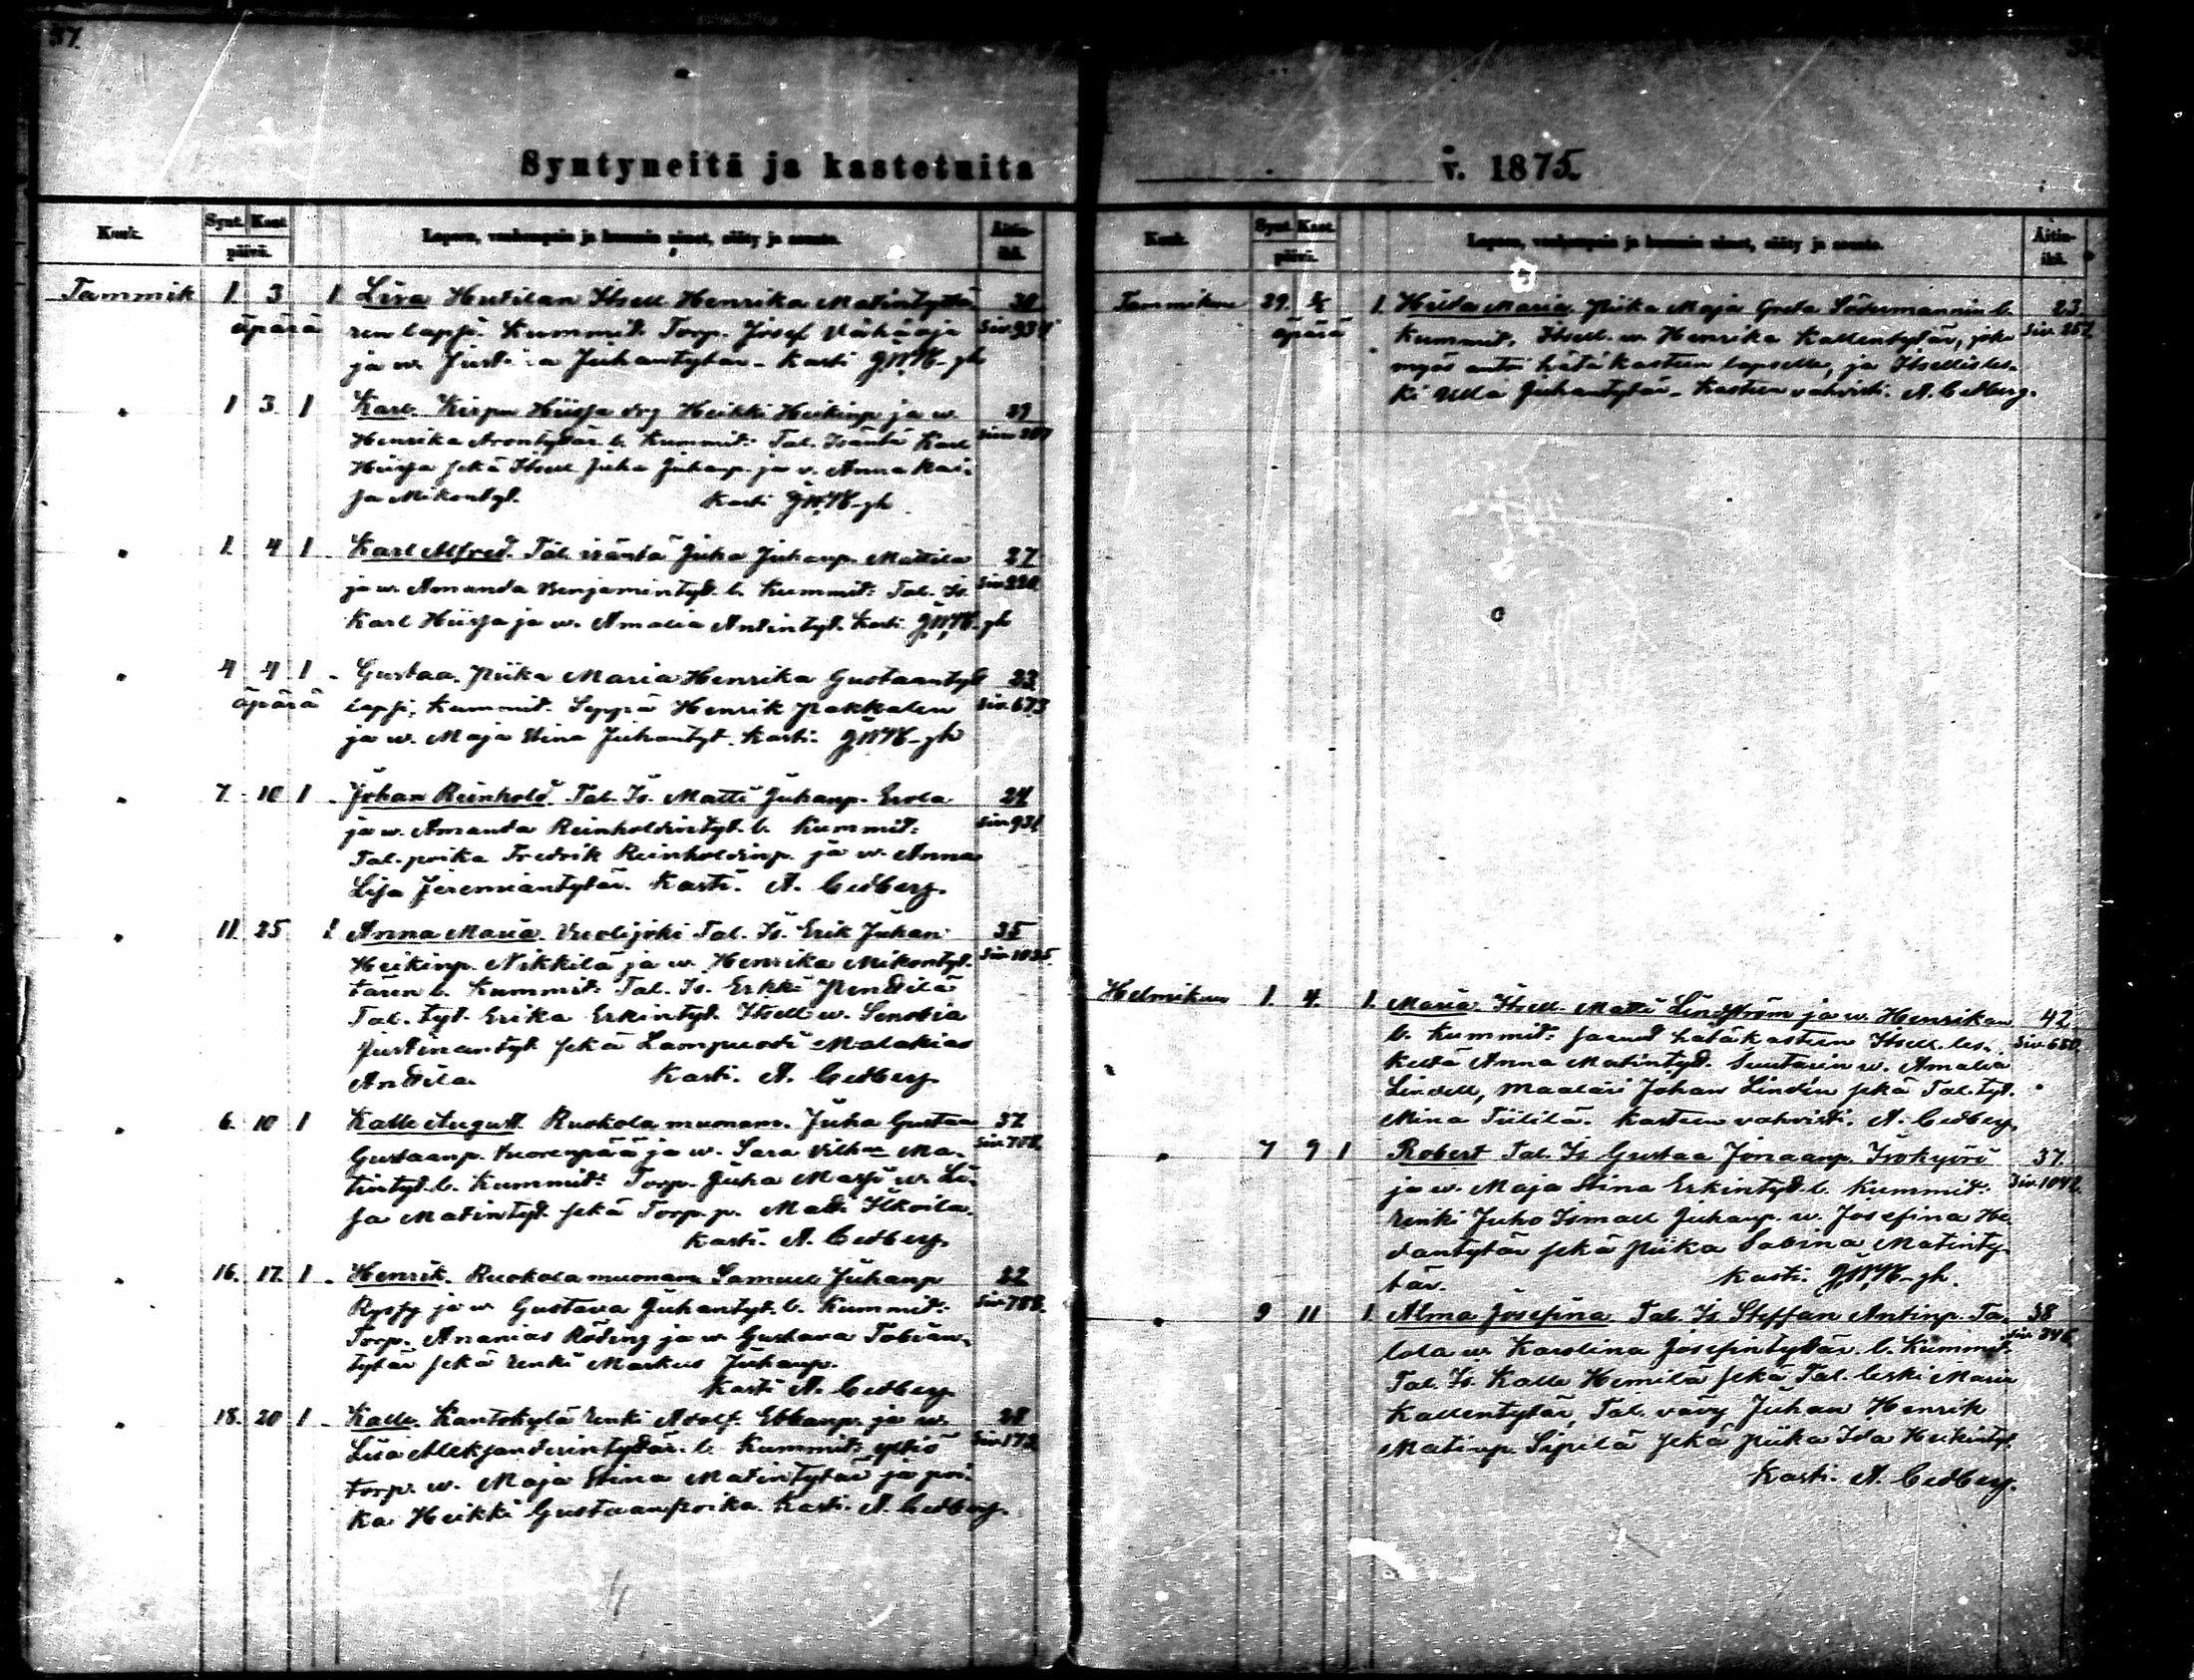 37.
Syntyneitä ja kastetuita
Kuuk. Synt. Kast. päivä. Lapsen, vanhempain ja kummin nimet, sääty ja asunto. Äitin ikä.
Tammik 1 3 1 Liva Hutilan Itsell. Henrika Matintyttä
äpärä ren lapsi. Kummit: Torp. Josef Vähäoja Siv. 931
ja w. Justina Juhantytär - Kasti
1 3 1 Karl. Heikki Heikinp. ja w. 29
Henrika Arontytär l. Kummit: Tal. Isäntä Karl
Hiisja sekä Itsell Juha Juhanp. ja v. Anna Kai-
sa Mikontyt. Kasti
1. 4 1 Karl Alfred. Tal. isäntä Juha Juhanp. Mattila 27
ja w. Amanda Benjamintyt. l. Kummit: Tal. Is. Siv. 220
Karl Hiisja ja w. Amalia Antintyt. Kasti
4 4 1 Gustaa. Piika Maria Henrika Gustaantyt 23
äpärä lapsi, Kummit. Seppä Henrik Pakkalen Siv. 673
ja w. Maja Stina Juhantyt. Kasti.
7. 10 1 Johan Reinhold. Tal. Is. Matti Juhanp. Erola 24
ja w. Amanda Reinholdintyt. l. Kummit: Siv. 931
Tal. poika Fredrik Reinholdinp. ja w. Anna
Lisa Jeremiantytär. Kasti. A. Cedberg.
11. 25 1 Anna Maria. Vuolijoki Tal. Is. Erik Juhan 35
Heikinp. Nikkilä ja w. Henrika Mikontyt. Siv. 1035.
tären l. Kummit: Tal. Is. Erkki Penttilä
Tal. tyt. Erika Erkintyt. Itsell w. Senobia
Justinantyt sekä Lampuoti Malakias
Anttila. Kasti. A. Cedberg.
6. 10 1 Kalle August. Ruokola muonam. Juha Gustaa 37
Gustaanp. Vuorenpää ja w. Sara Vilh. Ma-
tintyt. l. Kummit: Torp. Juha Massi w. Li-
sa Matintyt. sekä Torp. p. Matti Ilkoila.
Kasti. A. Cedberg.
16. 17. 1 Henrik. Ruokola muonam Samuel Juhanp 22
Ryssy ja w. Gustava Juhantyt. l. Kummit: Siv. 788.
Torp. Ananias Röding ja w. Gustava Tobian-
tytär sekä renki Markus Juhanp.
Kasti A. Cedberg
18. 20 1 Kalle. Kantokylä renki Adolf Ebbanp. ja w. 28
Lisa Aleksanderintytär. l. Kummit: yhtiö Siv. 178
torp. w. Maja Stina Matintytär ja poi-
ka Heikki Gustaanpoika. Kasti. A. Cedberg.
v. 1875.
Kuuk. Synt. Kast. päivä. Lapsen, vanhempain ja kummin nimet, sääty ja asunto. Äitin ikä.
Tammikuu 29. 1. Hilda Maria. Piika Maja Greta Södermannin l. 23.
äpärä Kummit. Itsell. w. Henrika Kallentytär, joka Siv. 257.
myös antoi hätäkasteen lapselle, ja Itsellisles-
ki Ulla Juhantytär. Kasteen vahvisti. A. Cedberg.
Helmikuu 1. 4. 1. Maria. Itsell. Matti Lindström ja w. Henrikan 42
l. Kummit: saanut hätäkasteen Itsell. les- Siv. 680.
keltä Anna Matintyt. Suutarin w. Amalia
Lindell, Maalari Johan Lindén sekä Tal. tyt.
Mina Tiililä. Kasteen vahvisti. A. Cedberg.
7 9 1 Robert Tal. Is. Gustaa Jonaanp. Isokyörö 37.
ja w. Maja Stina Erkintyt. l. Kummit: Siv. 1042.
Renki Juho Ismael Juhanp. w. Josefina He-
dantytär sekä Piika Sabina Matinty-
tär. Kasti.
9 11 1. Alma Josefina Tal. Is. Steffan Antinp. Ta- 38
lola w. Karolina Josefintytär. l. Kummit: Siv. 346
Tal. Is. Kalle Hemilä sekä Tal. leski Maria
Kallentytär, Tal. vävy Juhan Henrik
Matinp. Sipilä sekä Piika Ida Heikintyt.
Kasti. A. Cedberg.